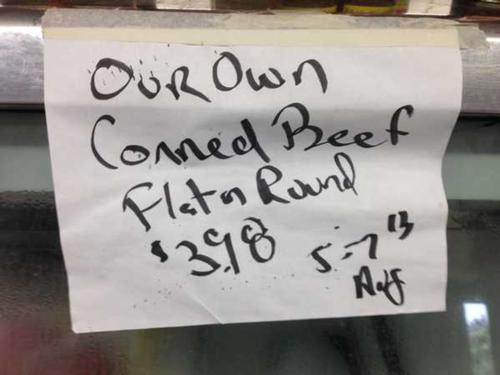 Our Own
Corned Beef
Flat or Round
$3.98 5-7 lb
Avg